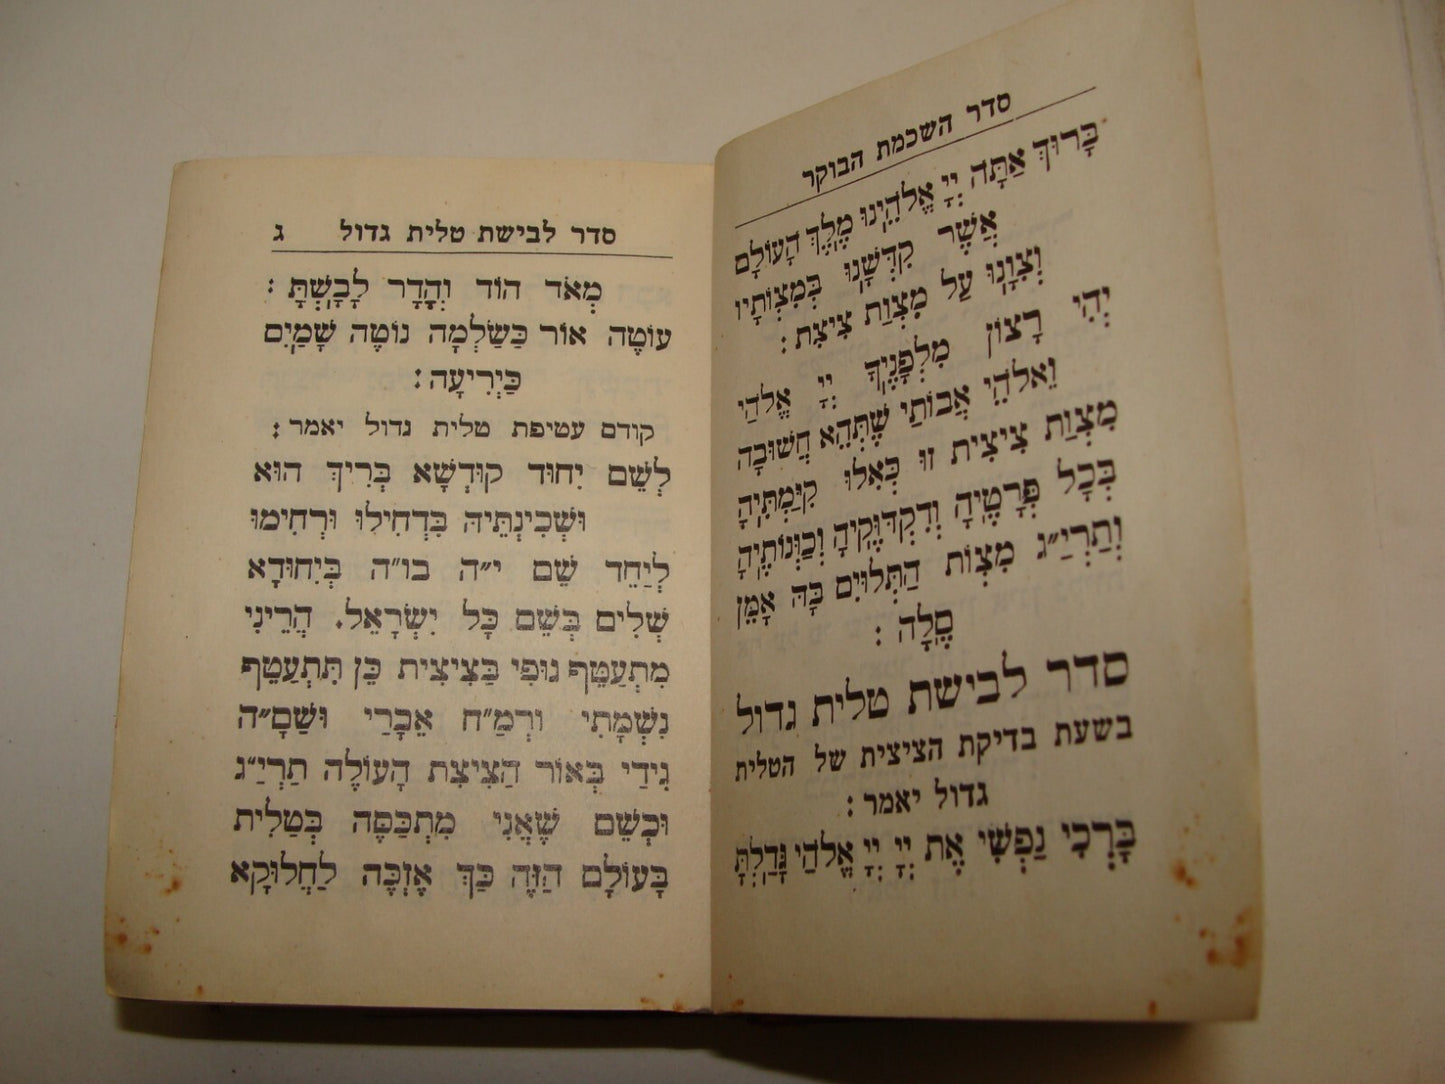 סדר השכמת הבוקר
בָּרוּךְ אַתָּה יְיָ אֱלֹהֵינוּ מֶלֶךְ הָעוֹלָם
אֲשֶׁר קִדְּשָׁנוּ בְּמִצְוֹתָיו
וְצִוָּנוּ עַל מִצְוַת צִיצִת :
יְהִי רָצוֹן מִלְּפָנֶיךָ יְיָ אֱלֹהַי
וֵאלֹהֵי אֲבוֹתַי שֶׁתְּהֵא חֲשׁוּבָה
מִצְוַת צִיצִית זוּ כְּאִלּוּ קִיַּמְתִּיהָ
בְּכָל פְּרָטֶיהָ וְדִקְדּוּקֶיהָ וְכַוָּנוֹתֶיהָ
וְתַרְיַ״ג מִצְוֹת הַתְּלוּיִם בָּהּ אָמֵן
סֶלָה :
סדר לבישת טלית גדול
בשעת בדיקת הציצית של הטלית
גדול יאמר :
בָּרְכִי נַפְשִׁי אֶת יְיָ יְיָ אֱלֹהַי גָּדַלְתָּ
סדר לבישת טלית גדול ג
מְאֹד הוֹד וְהָדָר לָבָשְׁתָּ :
עוֹטֶה אוֹר כַּשַּׂלְמָה נוֹטֶה שָׁמַיִם
כַּיְרִיעָה :
קודם עטיפת טלית גדול יאמר :
לְשֵׁם יִחוּד קוּדְשָׁא בְּרִיךְ הוּא
וּשְׁכִינְתֵּיהּ בִּדְחִילוּ וּרְחִימוּ
לְיַחֵד שֵׁם י״ה בו״ה בְּיִחוּדָא
שְׁלִים בְּשֵׁם כָּל יִשְׂרָאֵל. הֲרֵינִי
מִתְעַטֵּף גּוּפִי בַּצִיצִית כֵּן תִּתְעַטֵּף
נִשְׁמָתִי וּרְמַ״ח אֵבָרַי וּשַׁסָ״ה
גִידַי בְּאוֹר הַצִיצִת הָעוֹלֶה תַרְיַ״ג
וּכְשֵׁם שֶׁאֲנִי מִתְכַּסֶּה בְּטַלִּית
בָּעוֹלָם הַזֶּה כַּךְ אֶזְכֶּה לַחֲלוּקָא